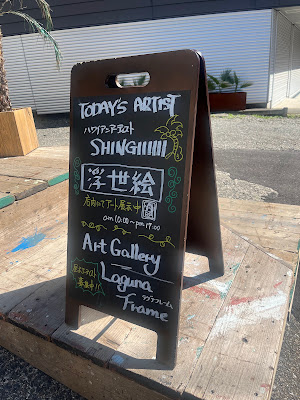 TODAY'S ARTIST
ハワイアンアーティスト
SHINGIIIIII
浮世絵
店内にてアート展示中
am 10:00〜pm 17:00
Art Gallery
Laguna
Frame
ラグナフレーム
募集中!!